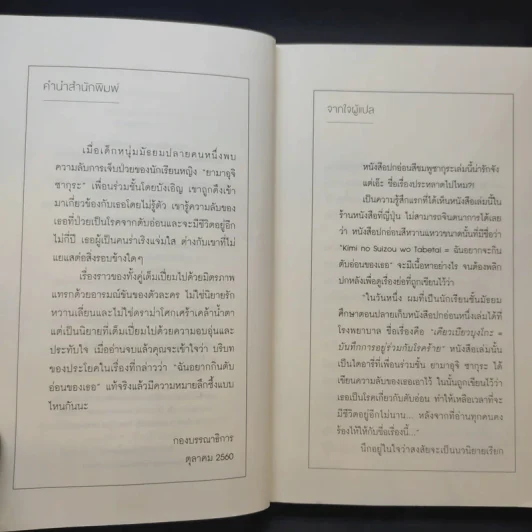 คำนำสำนักพิมพ์
เมื่อเด็กหนุ่มมัธยมปลายคนหนึ่งพบ
ความลับการเจ็บป่วยของนักเรียนหญิง "ยามาอุจิ
ซากุระ" เพื่อนร่วมชั้นโดยบังเอิญ เขาถูกดึงเข้า
มาเกี่ยวข้องกับเธอโดยไม่รู้ตัว เขารู้ความลับของ
เธอที่ป่วยเป็นโรคจากตับอ่อนและจะมีชีวิตอยู่อีก
ไม่กี่ปี เธอผู้เป็นคนร่าเริงแจ่มใส ต่างกับเขาที่ไม่
แยแสต่อสิ่งรอบข้างใดๆ
เรื่องราวของทั้งคู่เต็มเปี่ยมไปด้วยมิตรภาพ
แทรกด้วยอารมณ์ขันของตัวละคร ไม่ใช่นิยายรัก
หวานเลี่ยนและไม่ใช่ดราม่าโศกเศร้าเคล้าน้ำตา
แต่เป็นนิยายที่เต็มเปี่ยมไปด้วยความอบอุ่นและ
ประทับใจ เมื่ออ่านจบแล้วคุณจะเข้าใจว่า บริบท
ของประโยคในเรื่องที่กล่าวว่า "ฉันอยากกินตับ
อ่อนของเธอ" แท้จริงแล้วมีความหมายลึกซึ้งแบบ
ไหนกันนะ
กองบรรณาธิการ
ตุลาคม 2560
จากใจผู้แปล
หนังสือปกอ่อนสีชมพูซากุระเล่มนี้น่ารักจัง
แต่เอ๊ะ ชื่อเรื่องประหลาดไปไหม?!
เป็นความรู้สึกแรกที่ได้เห็นหนังสือเล่มนี้ใน
ร้านหนังสือที่ญี่ปุ่น ไม่สามารถจินตนาการได้เลย
ว่า หนังสือปกอ่อนสีหวานแหววขนาดนั้นที่มีชื่อว่า
"Kimi no Suizou wo Tabetai = ฉันอยากจะกิน
ตับอ่อนของเธอ" จะมีเนื้อหาอย่างไร จนต้องพลิก
ปกหลังเพื่อดูเรื่องย่อที่ถูกเขียนไว้ว่า
"ในวันหนึ่ง ผมที่เป็นนักเรียนชั้นมัธยม
ศึกษาตอนปลายเก็บหนังสือปกอ่อนหนึ่งเล่มได้ที่
โรงพยาบาล ชื่อเรื่องคือ "เคียวเบียวบุงโกะ =
บันทึกการอยู่ร่วมกับโรคร้าย" หนังสือเล่มนั้น
เป็นไดอารี่ที่เพื่อนร่วมชั้น ยามาอุจิ ซากุระ ได้
เขียนความลับของเธอเอาไว้ ในนั้นถูกเขียนไว้ว่า
เธอเป็นโรคเกี่ยวกับตับอ่อน ทำให้เหลือเวลาที่จะ
มีชีวิตอยู่อีกไม่นาน... หลังจากที่อ่านทุกคนคง
ร้องไห้ให้กับชื่อเรื่องนี้..."
นึกอยู่ในใจว่าสงสัยจะเป็นนวนิยายเรียก